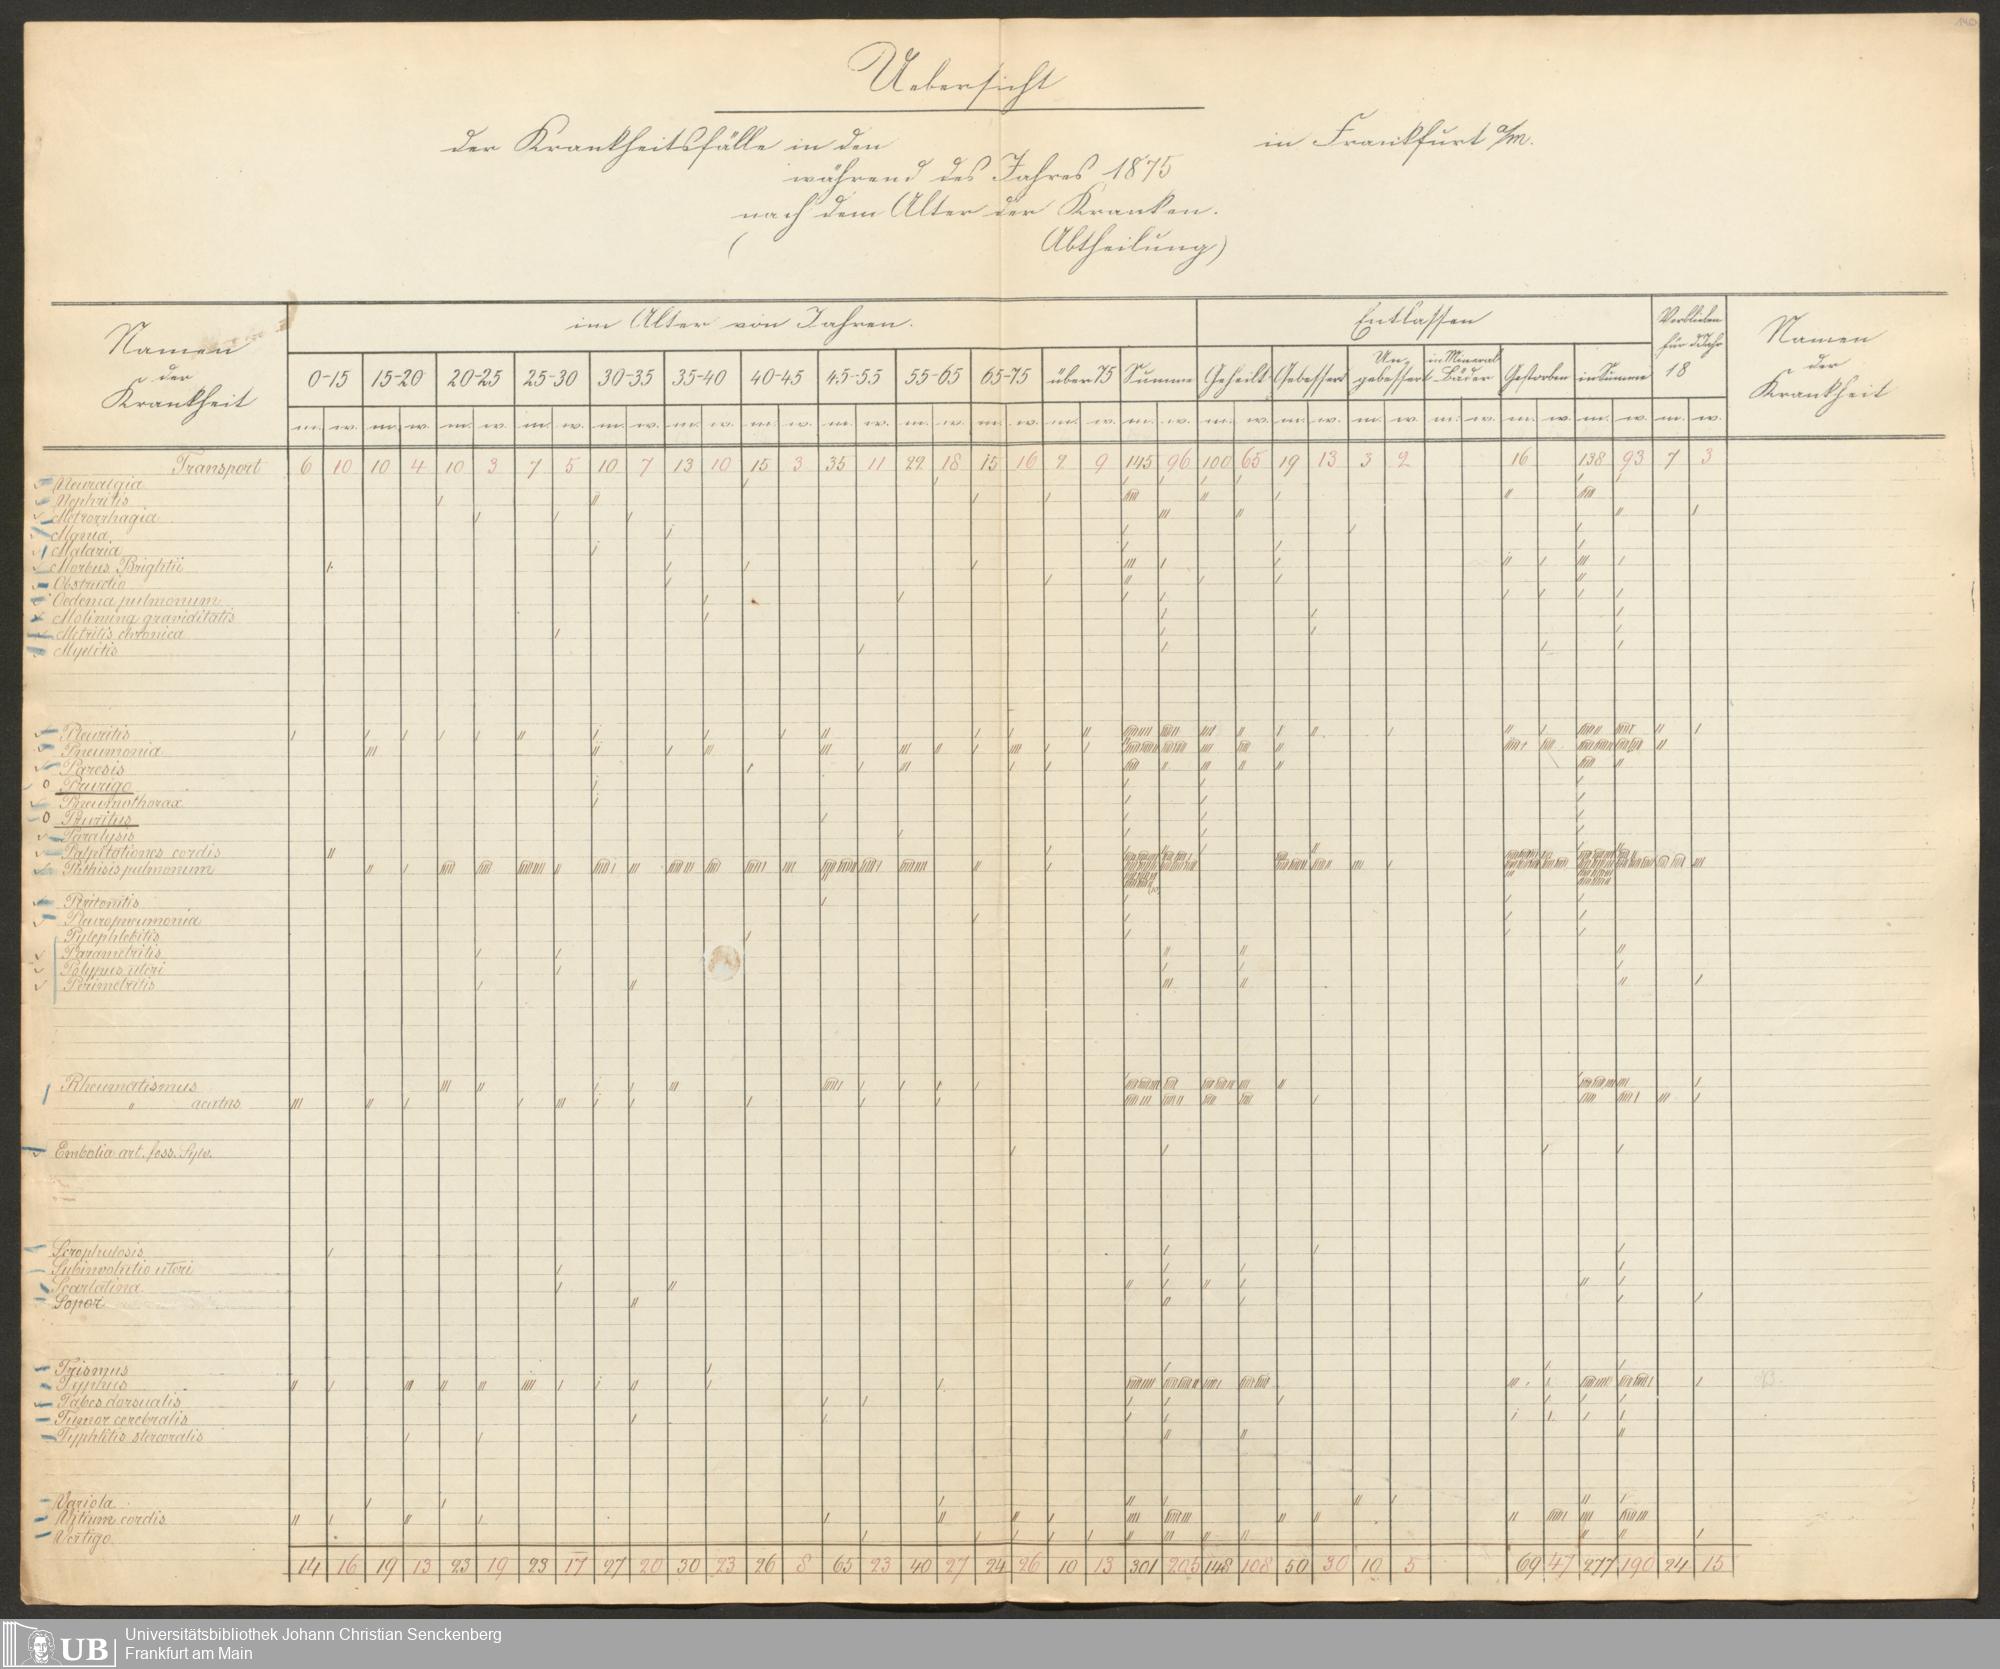 Uebersicht
der Krankheitsfälle in den in Frankfurt a/M.
während des Jahres 1875
nach dem Alter der Kranken.
( Abtheilung)
Namen der Krankheit
im Alter von Jahren.
Entlassen
Verblieben für d Jahr 18
Namen der Krankheit
0-15 15-20 20-25 25-30 30-35 35-40 40-45 45-55 55-65 65-75 über 75 Summe Geheilt Gebessert Ungebessert in Mineral Bäder Gestorben in Summe
m. w. m. w. m. w. m. w. m. w. m. w. m. w. m. w. m. w. m. w. m. w. m. w. m. w. m. w. m. w. m. w. m. w. m. w. m. w.
Transport 6 10 10 4 10 3 7 5 10 7 13 10 15 3 35 11 22 18 15 16 2 9 145 96 100 65 19 13 3 2 16 138 93 7 3
Neuralgia
Nephritis
Metrorrhagia
Mania
Malaria
Morbus Brightii
Obstructio
Oedema pulmonum
Molimina graviditatis
Metritis chronica
Myelitis
Pleuritis
Pneumonia
Paresis
Prurigo
Pneumothorax
Pruritus
Paralysis
Palpitationes cordis
Phthisis pulmonum
Peritonitis
Pleuropneumonia
Pylephlebitis
Parametritis
Polypus uteri
Perimetritis
Rheumatismus
" acutus
Embolia art. foss. Sylv.
Scrophulosis
Subinvolutio uteri
Scarlatina
Sopor
Trismus
Typhus
Tabes dorsualis
Tumor cerebralis
Typhlitis stercoralis
Variola
Vitium cordis
Vertigo
14 16 19 13 23 19 23 17 27 20 30 23 26 8 65 23 40 27 24 26 10 13 301 205 148 108 50 30 10 5 69 47 277 190 24 15
UB
Universitätsbibliothek Johann Christian Senckenberg
Frankfurt am Main